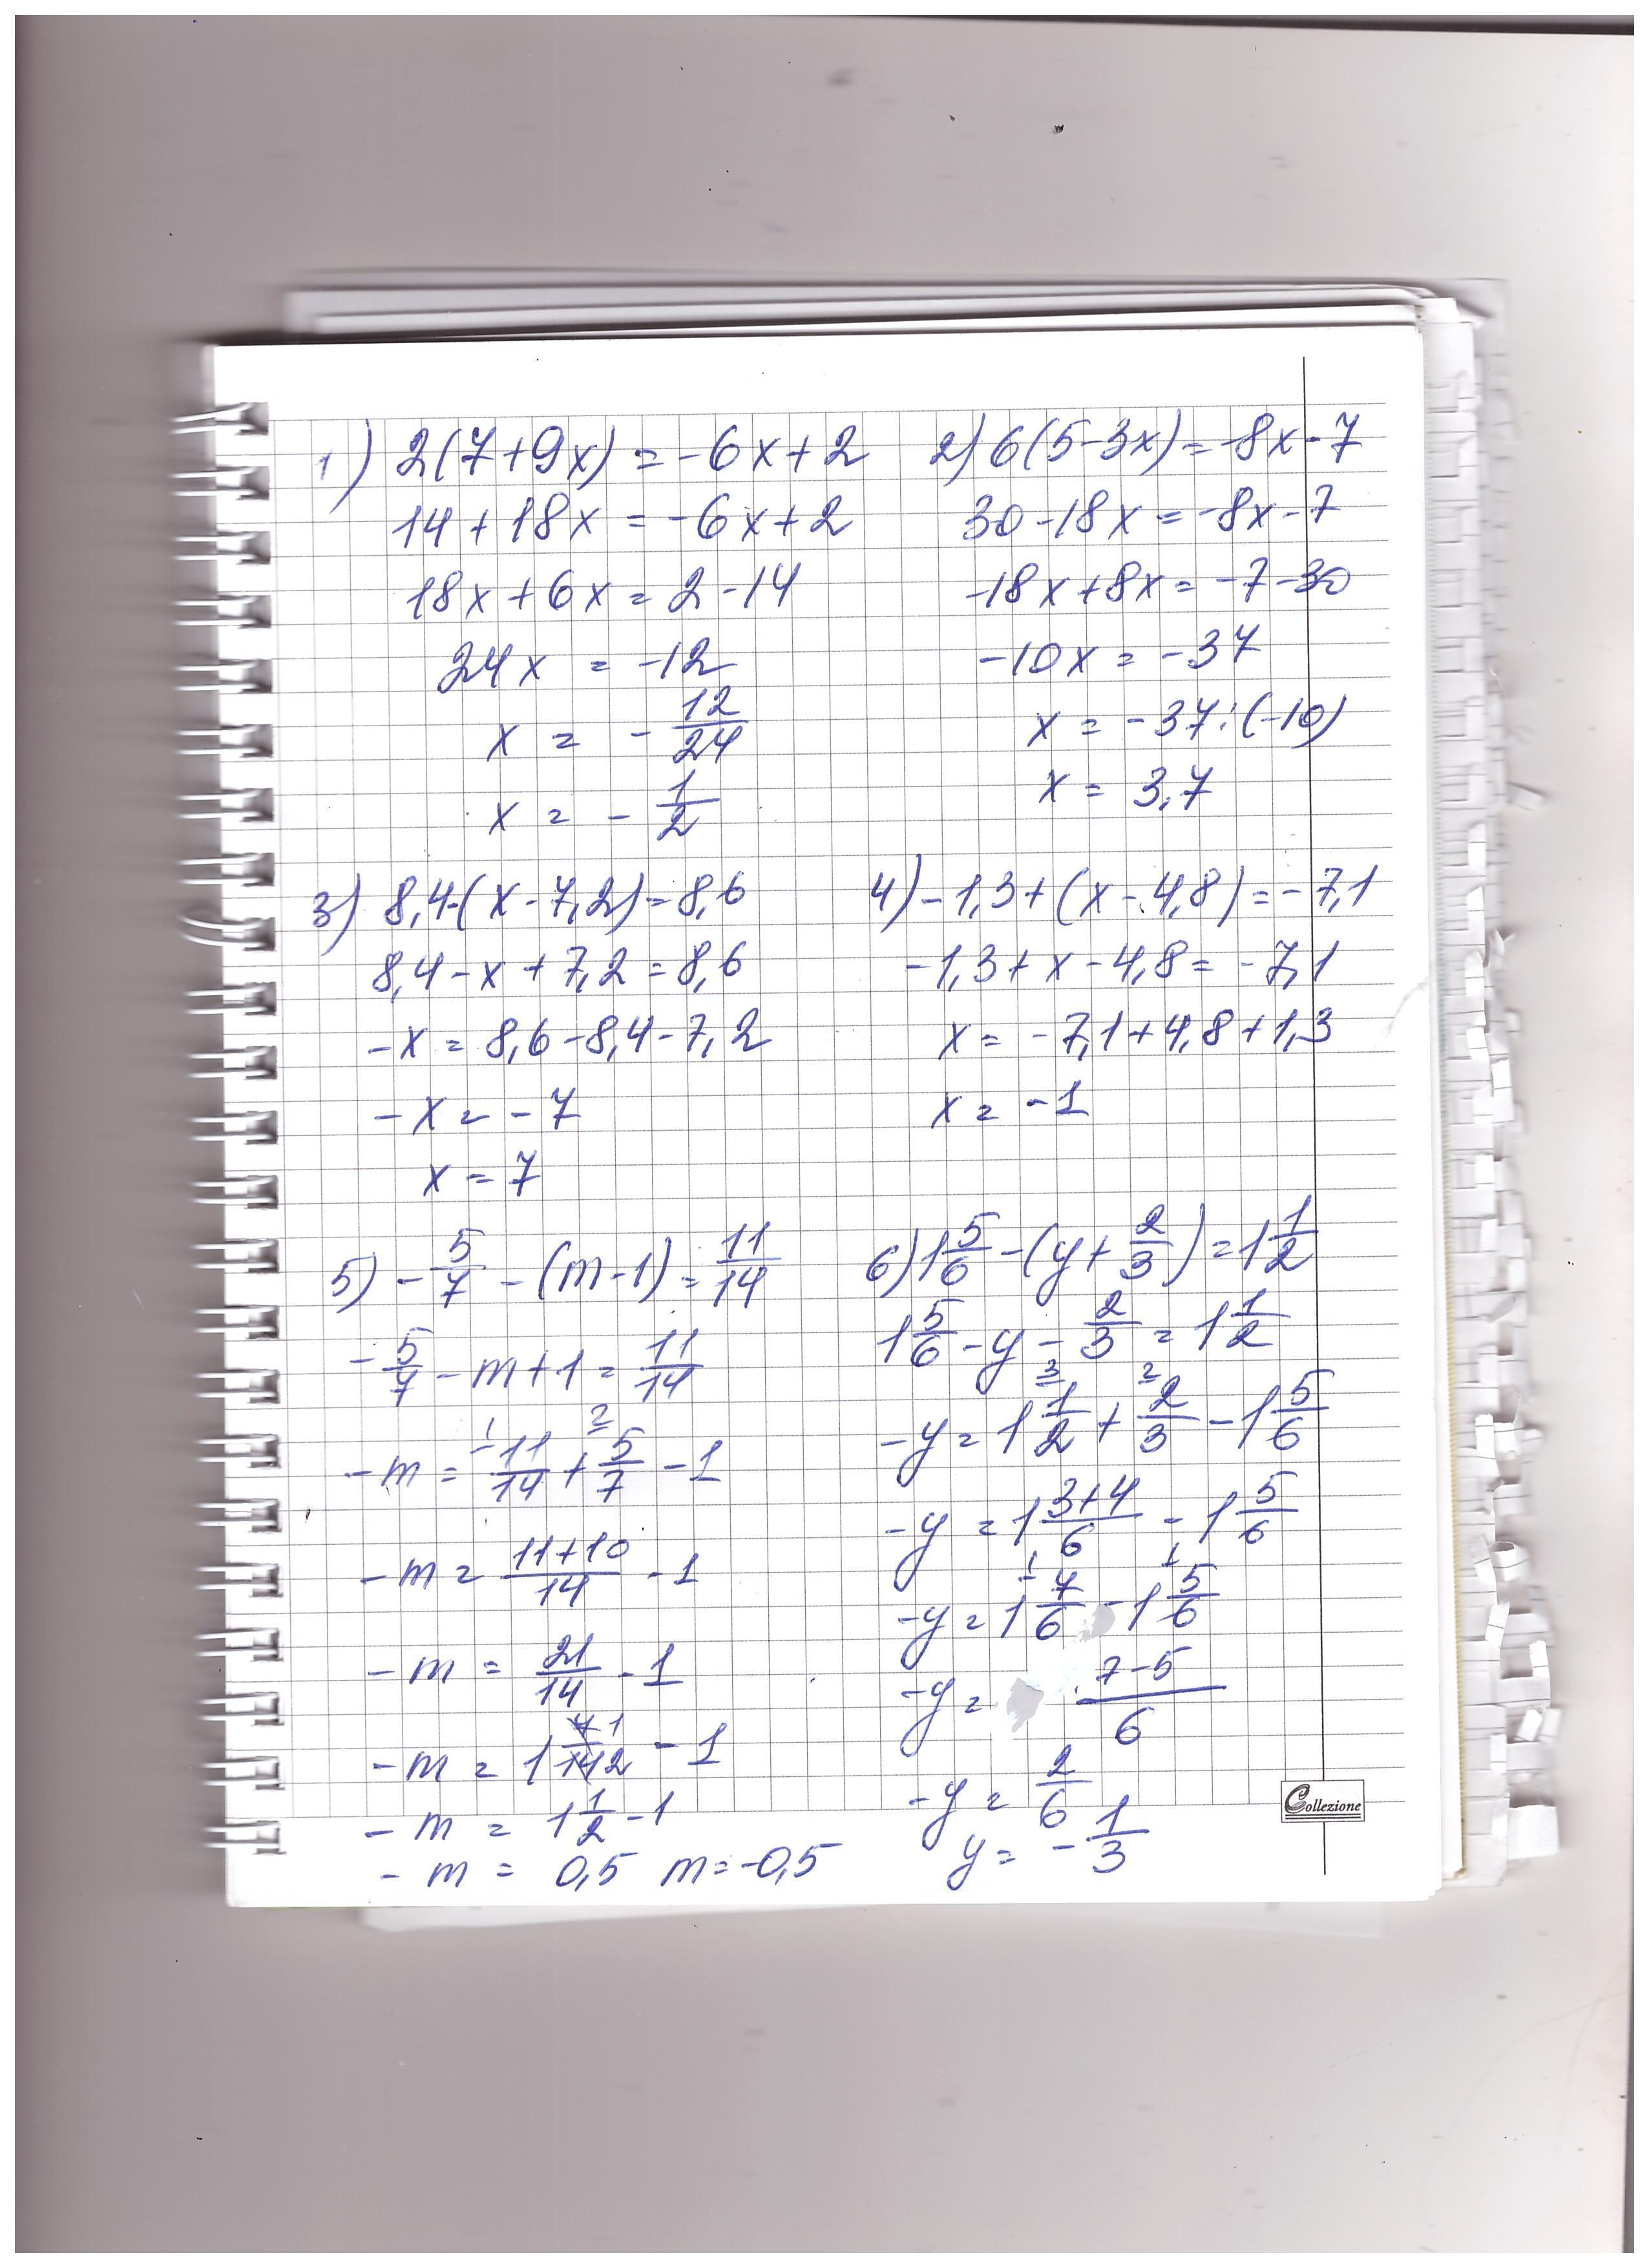 1) 2(7+9x)=-6x+2
14+18x=-6x+2
18x+6x=2-14
24x=-12
x=-12/24
x=-1/2
2) 6(5-3x)=-8x-7
30-18x=-8x-7
-18x+8x=-7-30
-10x=-37
x=-37:(-10)
x=3,7
3) 8,4-(x-7,2)=8,6
8,4-x+7,2=8,6
-x=8,6-8,4-7,2
-x=-7
x=7
4) -1,3+(x-4,8)=-7,1
-1,3+x-4,8=-7,1
x=-7,1+4,8+1,3
x=-1
5) -5/7-(m-1)=11/14
-5/7-m+1=11/14
-m=11/14+5/7-1
-m=(11+10)/14-1
-m=21/14-1
-m=1 7/14 1/2-1
-m=1 1/2-1
-m=0,5 m=-0,5
6) 1 5/6-(y+2/3)=1 1/2
1 5/6-y-2/3=1 1/2
-y=1 1/2+2/3-1 5/6
-y=1 (3+4)/6-1 5/6
-y=1 7/6-1 5/6
-y=(7-5)/6
-y=2/6
y=-1/3
Collezione